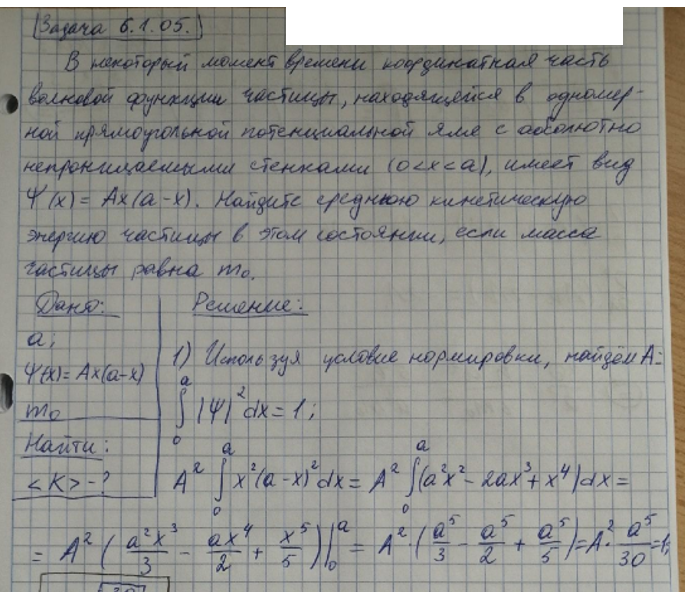 Задача 6.1.05.
В некоторый момент времени координатная часть
волновой функции частицы, находящейся в одномер-
ной прямоугольной потенциальной яме с абсолютно
непроницаемыми стенками (0<x<a), имеет вид
Ψ(x) = Ax(a-x). Найдите среднюю кинетическую
энергию частицы в этом состоянии, если масса
частицы равна m₀.
Дано:
a;
Ψ(x)=Ax(a-x)
m₀
Найти:
<K> - ?
Решение:
1) Используя условие нормировки, найдём A:
∫₀ᵃ |Ψ|² dx = 1;
A² ∫₀ᵃ x²(a-x)² dx = A² ∫₀ᵃ (a²x² - 2ax³ + x⁴) dx =
= A² (a²x³/3 - ax⁴/2 + x⁵/5)|₀ᵃ = A²·(a⁵/3 - a⁵/2 + a⁵/5) = A²·a⁵/30 = 1;